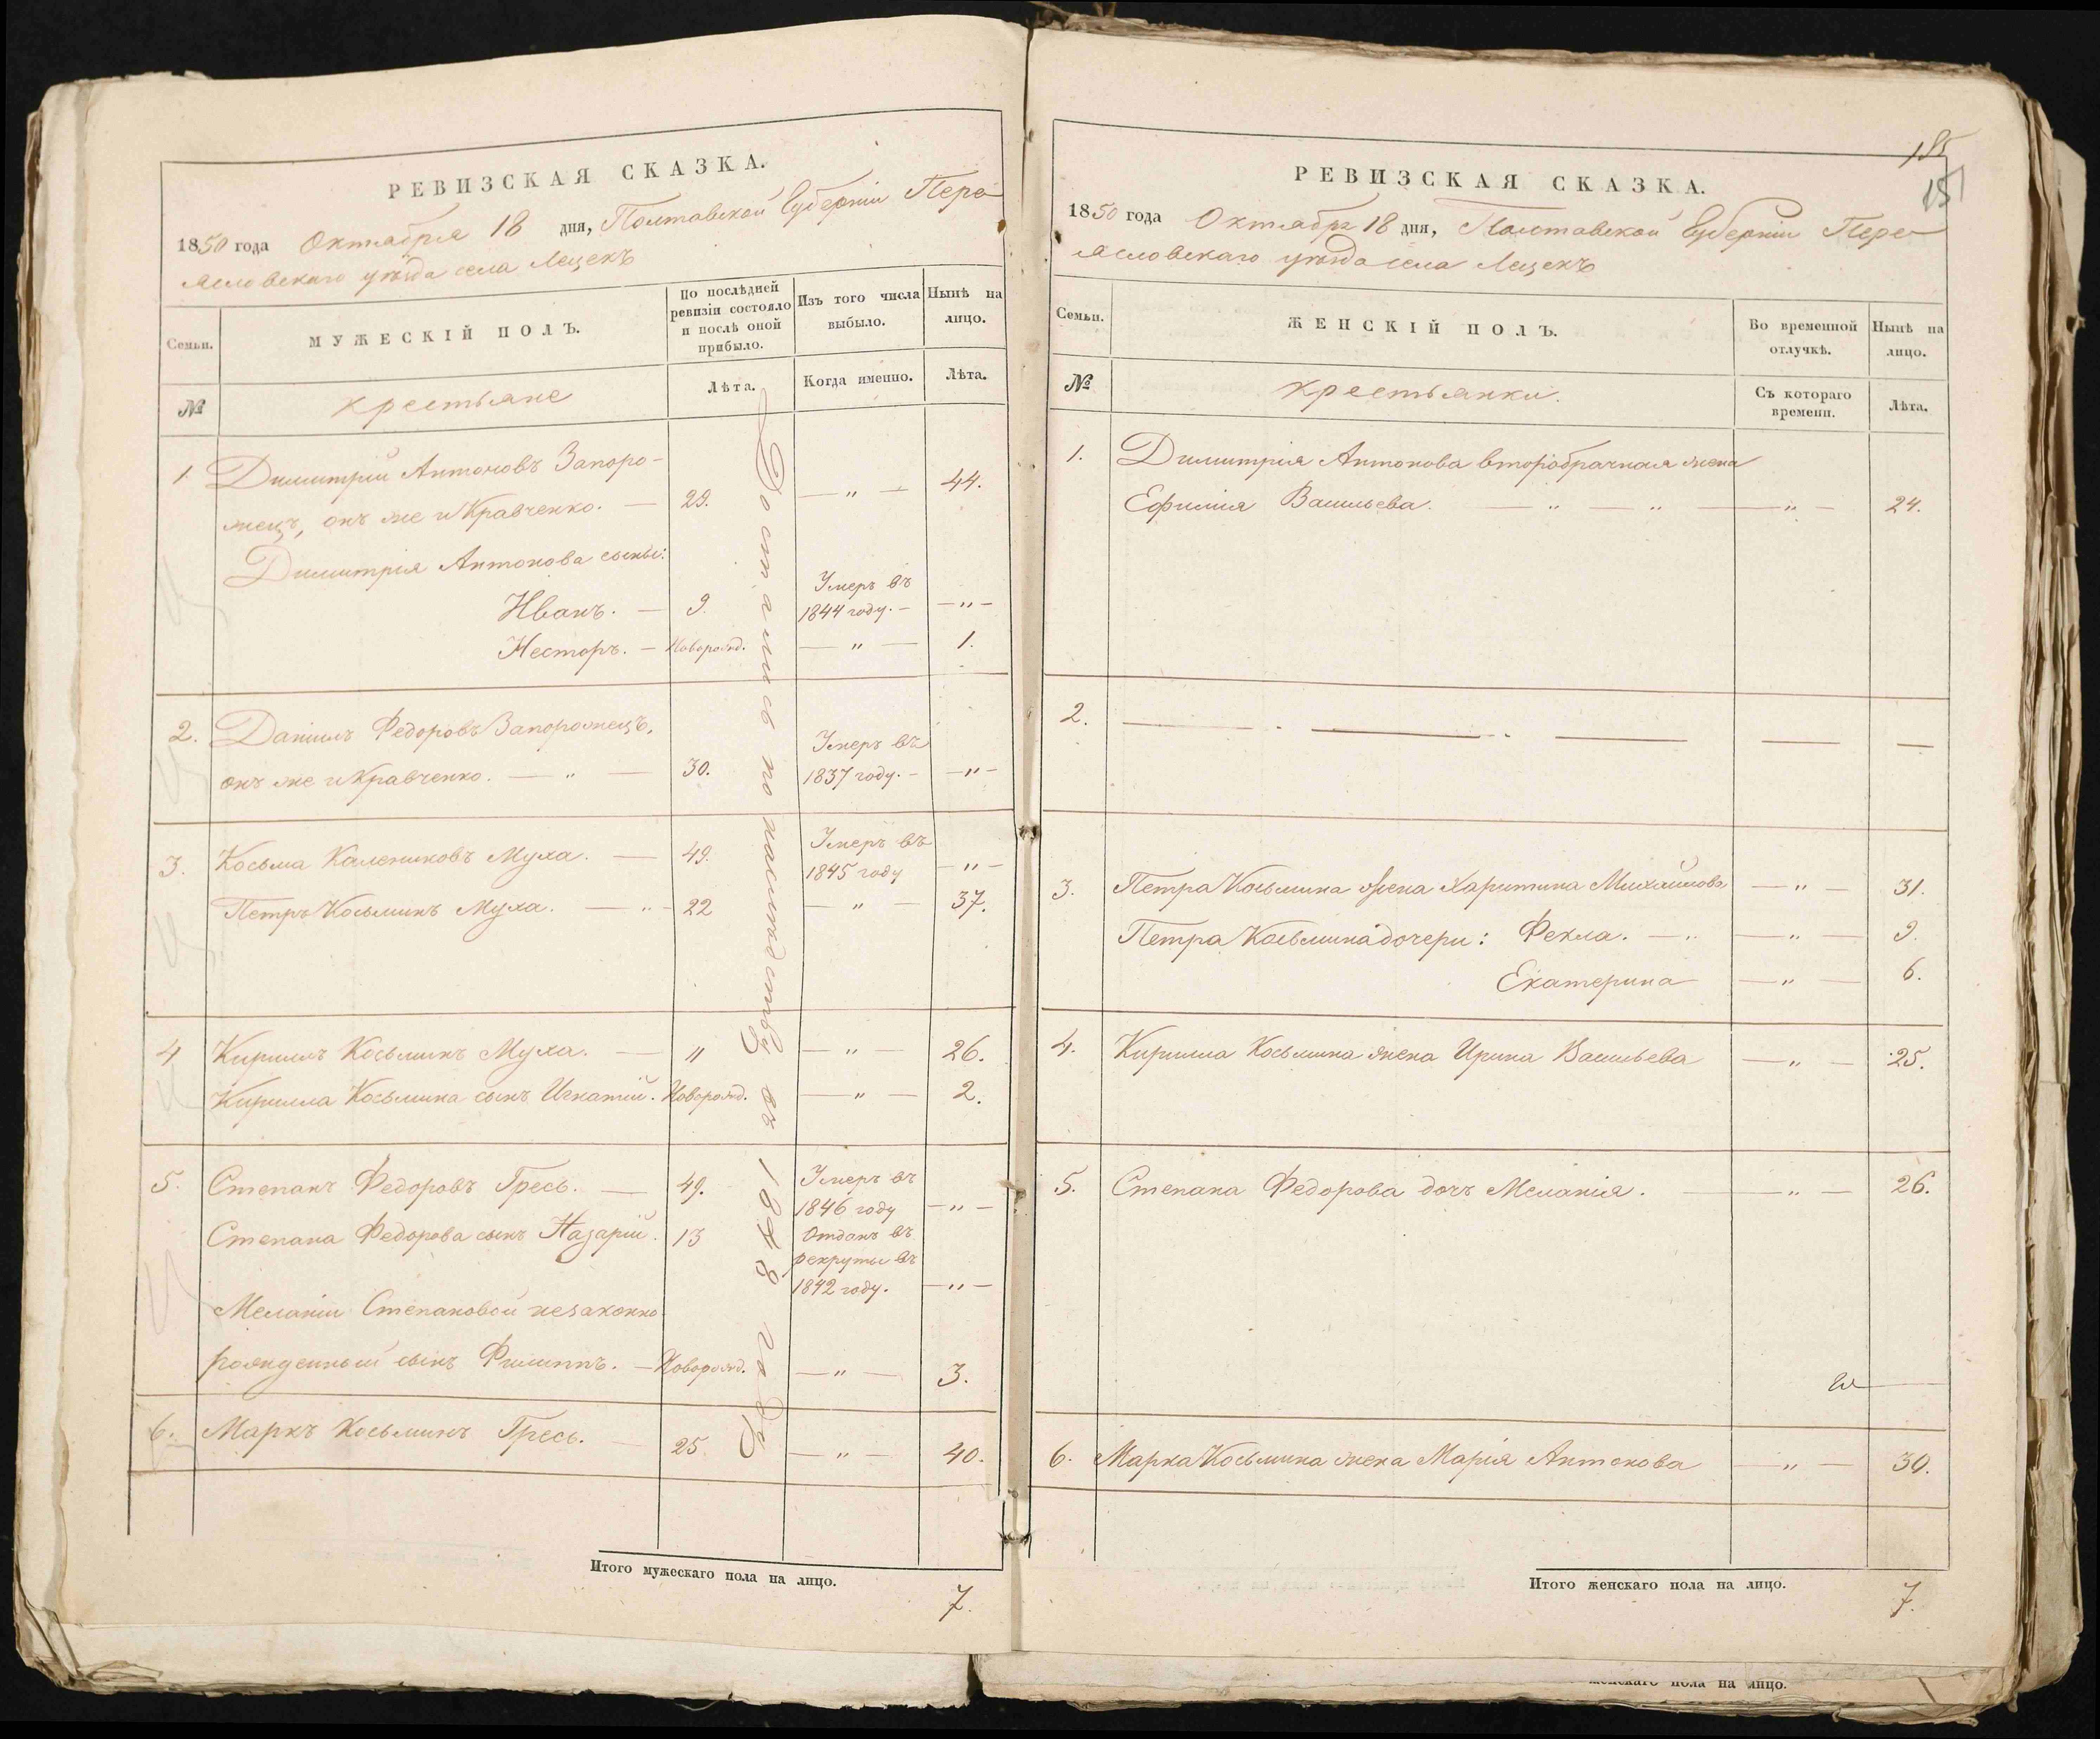 РЕВИЗСКАЯ СКАЗКА.
1850 года Октября 18 дня, Полтавской Губерніи Пере-
ясловскаго уѣзда села Лецекъ
Семьи.
МУЖЕСКІЙ ПОЛЪ.
По послѣдней ревизіи состояло и послѣ оной прибыло.
Изъ того числа выбыло.
Нынѣ на лицо.
№
Крестьяне
Лѣта.
Когда именно.
Лѣта.
1. Димитрій Антоновъ Запоро-
жецъ, онъ же и Кравченко. — 29. — „ — 44.
Димитрія Антонова сыны:
Иванъ. — 9. Умеръ въ
1844 году. — — „ —
Несторъ. — Новорожд. — „ — 1.
2. Даніилъ Федоровъ Запорожецъ,
онъ же и Кравченко. — „ — 30. Умеръ въ
1837 году. — — „ —
3. Косьма Калениковъ Муха. — 49. Умеръ въ
1845 году — „ —
Петръ Косьминъ Муха. — „ — 22 — „ — 37.
4 Кириллъ Косьминъ Муха. — „ — „ — 26.
Кирилла Косьмина сынъ Игнатій. Новорожд. — „ — 2.
5. Степанъ Федоровъ Гресь. — 49. Умеръ въ
1846 году — „ —
Степана Федорова сынъ Назарій. 13 Отданъ въ
рекруты въ
1842 году. — „ —
Меланіи Степановой незаконно-
рожденный сынъ Филиппъ. — Новорожд. — „ — 3.
6. Маркъ Косьминъ Гресь. — 25 — „ — 40.
Итого мужескаго пола на лицо.
7.
185
151
РЕВИЗСКАЯ СКАЗКА.
1850 года Октября 18 дня, Полтавской Губерніи Пере-
ясловскаго уѣзда села Лецекъ
Семьи.
ЖЕНСКІЙ ПОЛЪ.
Во временной отлучкѣ.
Нынѣ на лицо.
№
Крестьянки.
Съ котораго времени.
Лѣта.
1. Димитрія Антонова второбрачная жена
Ефимія Васильева. — „ — „ — — „ — 24.
2. — — — — —
3. Петра Косьмина жена Харитина Михайлова — „ — 31.
Петра Косьмина дочери: Фекла. — „ — „ — 9.
Екатерина — „ — 6.
4. Кирилла Косьмина жена Ирина Васильева — „ — 25.
5. Степана Федорова дочь Меланія. — — „ — 26.
6. Марка Косьмина жена Марія Антонова — „ — 30.
Итого женскаго пола на лицо.
7.
женскаго пола на лицо.